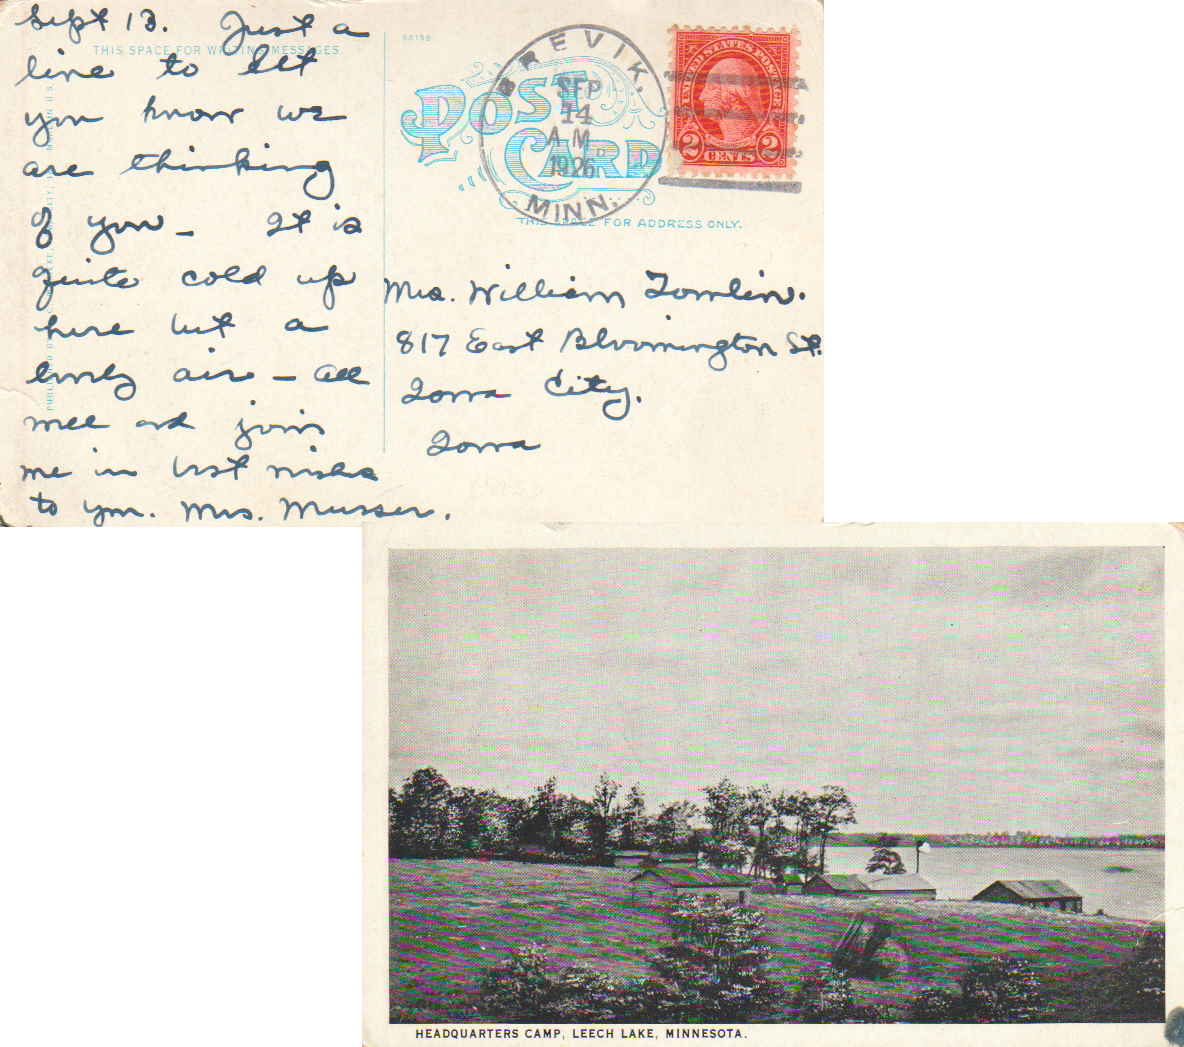 Sept 13. Just a
THIS SPACE FOR WRITING MESSAGES
line to let
you know we
are thinking
of you — It is
quite cold up
here but a
lovely air — all
well and joins
me in best wishes
to you. Mrs. Musser.
POST CARD
BREVIK, MINN.
SEP
14
A M
1926
UNITED STATES POSTAGE
2 CENTS 2
THIS SPACE FOR ADDRESS ONLY.
Mrs. William Tomlin.
817 East Bloomington St.
Iowa City.
Iowa
HEADQUARTERS CAMP, LEECH LAKE, MINNESOTA.